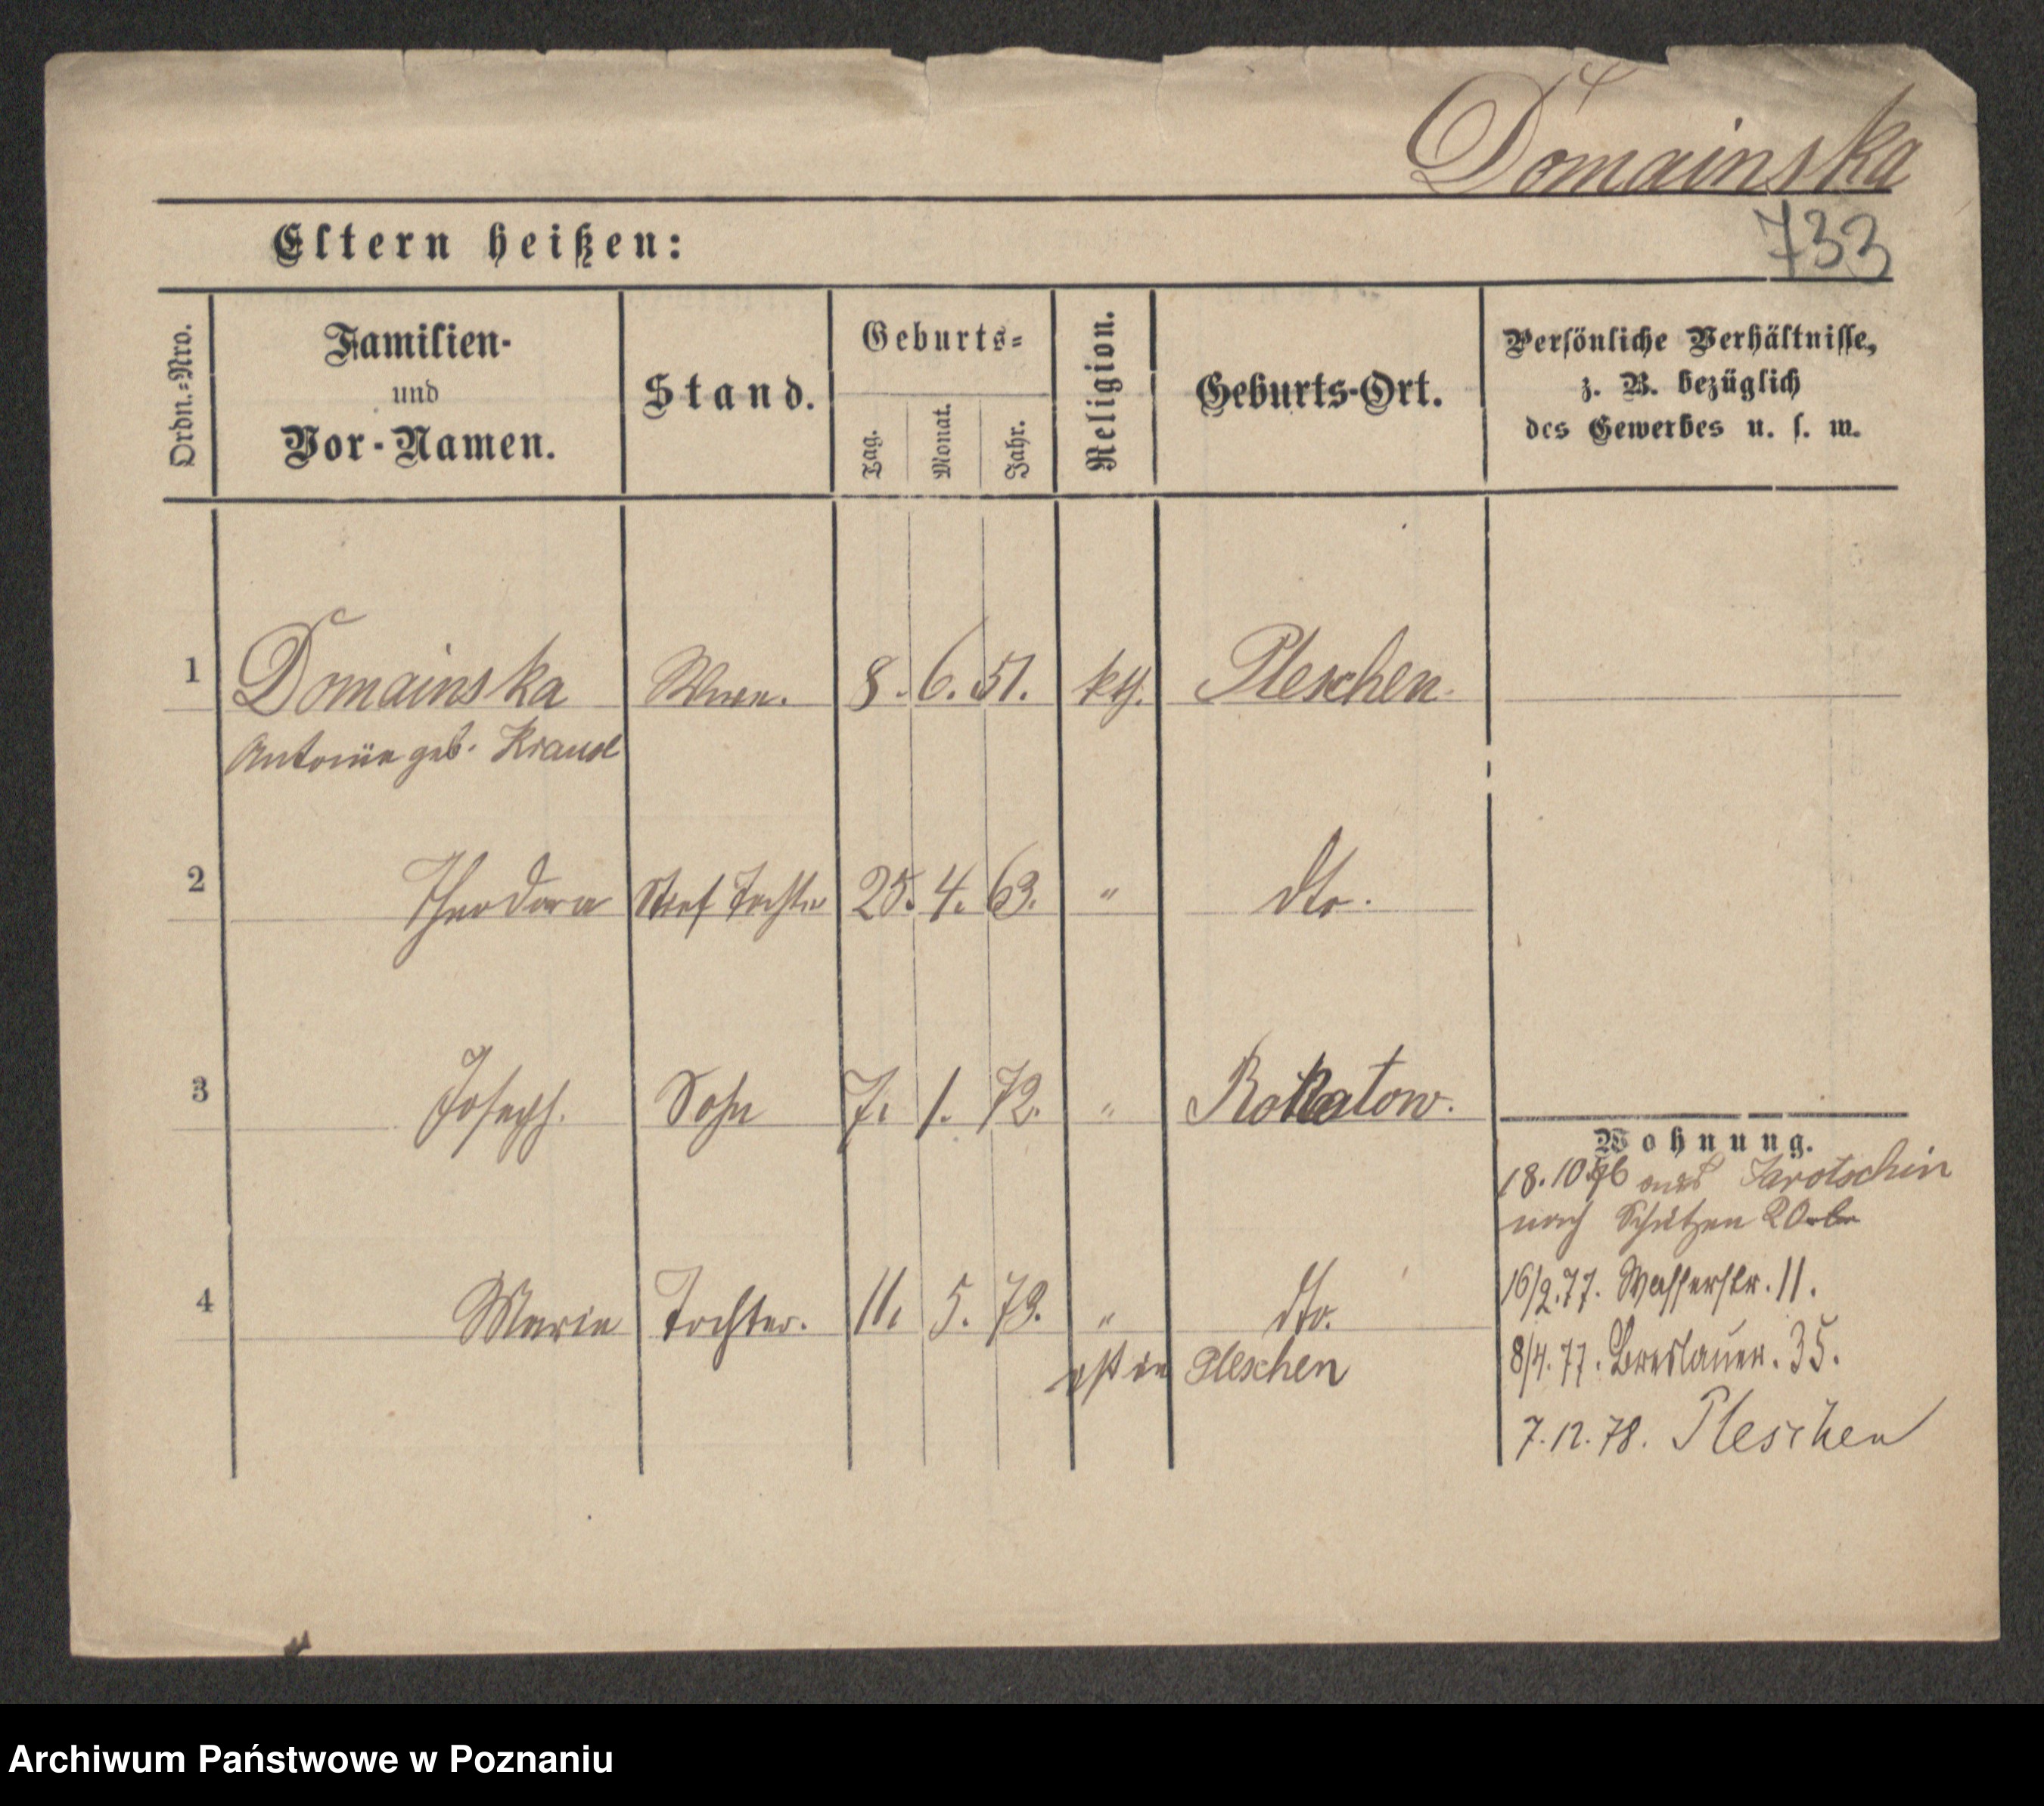 Domainska
733
Eltern heißen:
Ordn.=Nro.
Familien-
und
Vor-Namen.
Stand.
Geburts=
Tag.
Monat.
Jahr.
Religion.
Geburts-Ort.
Persönliche Verhältnisse,
z. B. bezüglich
des Gewerbes u. s. w.
1 Domainska 8. 6. 51. kth. Pleschen.
Antonie geb. Krause
2 Theodora Stief Tochter 25. 4. 63. " dto.
3 Joseph. Sohn 7. 1. 72. " Rokatow.
4 Marie Tochter. 11. 5. 73. " dto.
ist in Pleschen
Wohnung.
18.10.76 aus Jarotschin
nach Schützen 20
16/2.77. Wasserstr. 11.
8/4.77. Breslauer. 35.
7.12.78. Pleschen
Archiwum Państwowe w Poznaniu